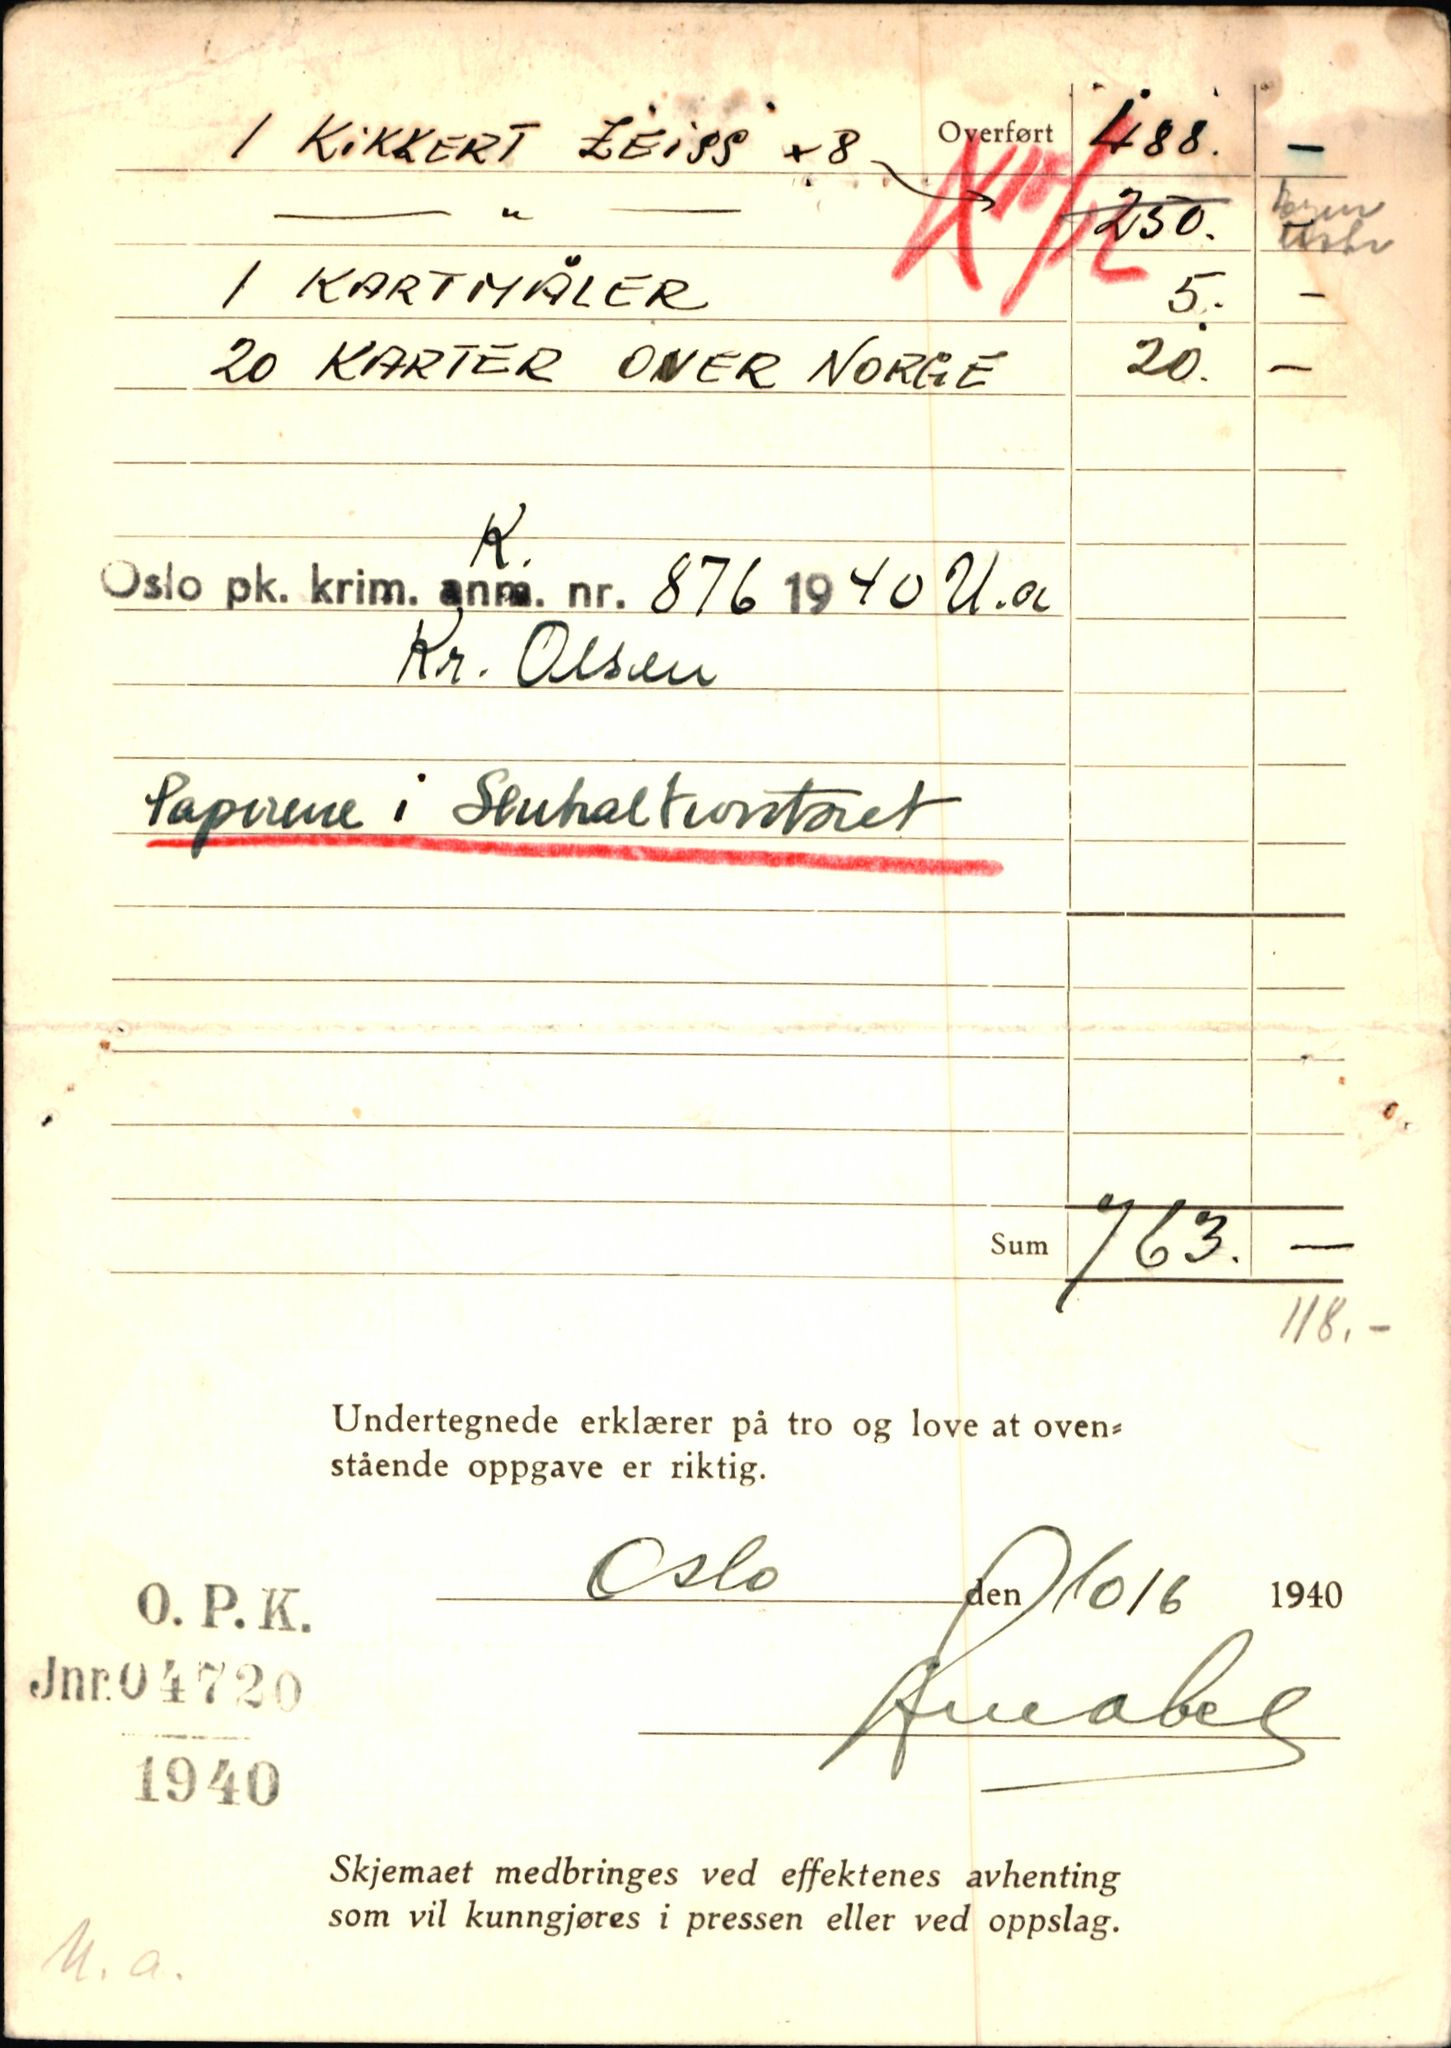 1 KIKKERT ZEISS × 8 Overført 488. –
— " — 250.
1 KARTMÅLER 5. –
20 KARTER OVER NORGE 20. –
K.
Oslo pk. krim. anm. nr. 876 1940 U.a
Kr. Olsen
Papirene i Sentralkontoret
Sum 763. –
118.-
Undertegnede erklærer på tro og love at oven=
stående oppgave er riktig.
Oslo den 10/6 1940
O. P. K.
Jnr. 04720
1940
Skjemaet medbringes ved effektenes avhenting
som vil kunngjøres i pressen eller ved oppslag.
U. a.